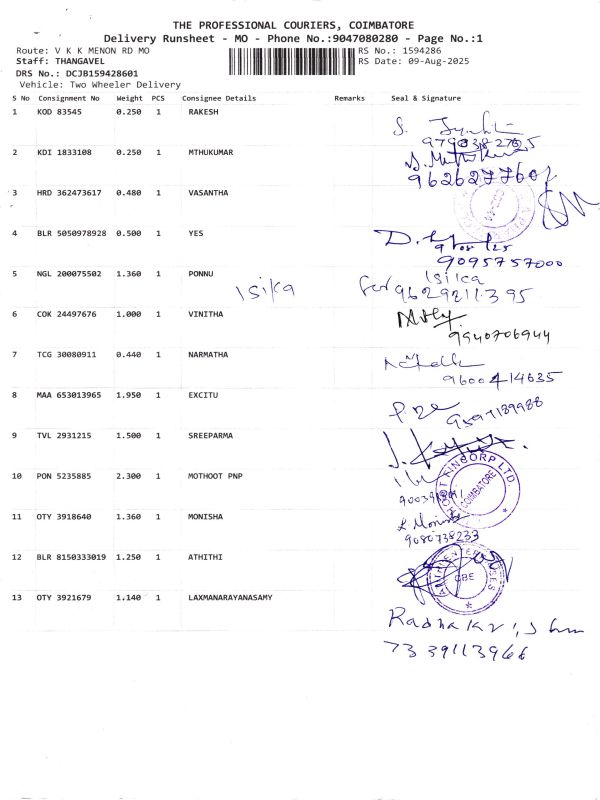 THE PROFESSIONAL COURIERS, COIMBATORE
Delivery Runsheet - MO - Phone No.:9047080280 - Page No.:1
Route: V K K MENON RD MO RS No.: 1594286
Staff: THANGAVEL RS Date: 09-Aug-2025
DRS No.: DCJB159428601
Vehicle: Two Wheeler Delivery
S No Consignment No Weight PCS Consignee Details Remarks Seal & Signature
1 KOD 83545 0.250 1 RAKESH
9790382705
2 KDI 1833108 0.250 1 MTHUKUMAR
3 HRD 362473617 0.480 1 VASANTHA
4 BLR 5050978928 0.500 1 YES
9095757000
5 NGL 200075502 1.360 1 PONNU
Isika for Isika
9629211395
6 COK 24497676 1.000 1 VINITHA
9940706944
7 TCG 30080911 0.440 1 NARMATHA
9600414635
8 MAA 653013965 1.950 1 EXCITU
9 TVL 2931215 1.500 1 SREEPARMA
10 PON 5235885 2.300 1 MOTHOOT PNP
FINCORP LTD. COIMBATORE
11 OTY 3918640 1.360 1 MONISHA
9080738233
12 BLR 8150333019 1.250 1 ATHITHI
CBE
13 OTY 3921679 1.140 1 LAXMANARAYANASAMY
7339113966